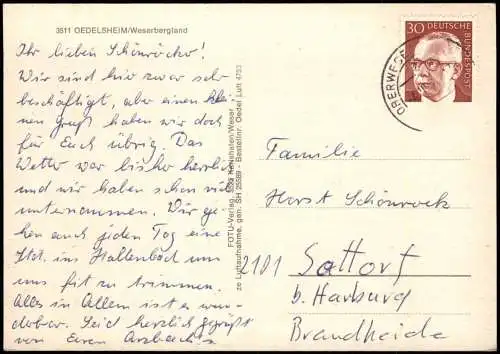 3511 OEDELSHEIM/Weserbergland
Ihr lieben Schönröcke!
Wir sind hier zwar sehr
beschäftigt, aber einen klei-
nen Gruß haben wir doch
für Euch übrig. Das
Wetter war bisher herrlich
und wir haben schon viel
unternommen. Wir ge-
hen auch jeden Tag eine
Std. ins Hallenbad um
uns fit zu trimmen.
Alles in Allem ist es wun-
derbar. Seid herzlich gegrüßt
von Euren
FOTU-Verlag,
ze Luftaufnahme, gen. SH 25589 - Bestellnr. Oedel Luft 4753
30 DEUTSCHE
BUNDESPOST
OBERWESER
Familie
Horst Schönrock
2101 Sottorf
b. Harburg
Brandheide